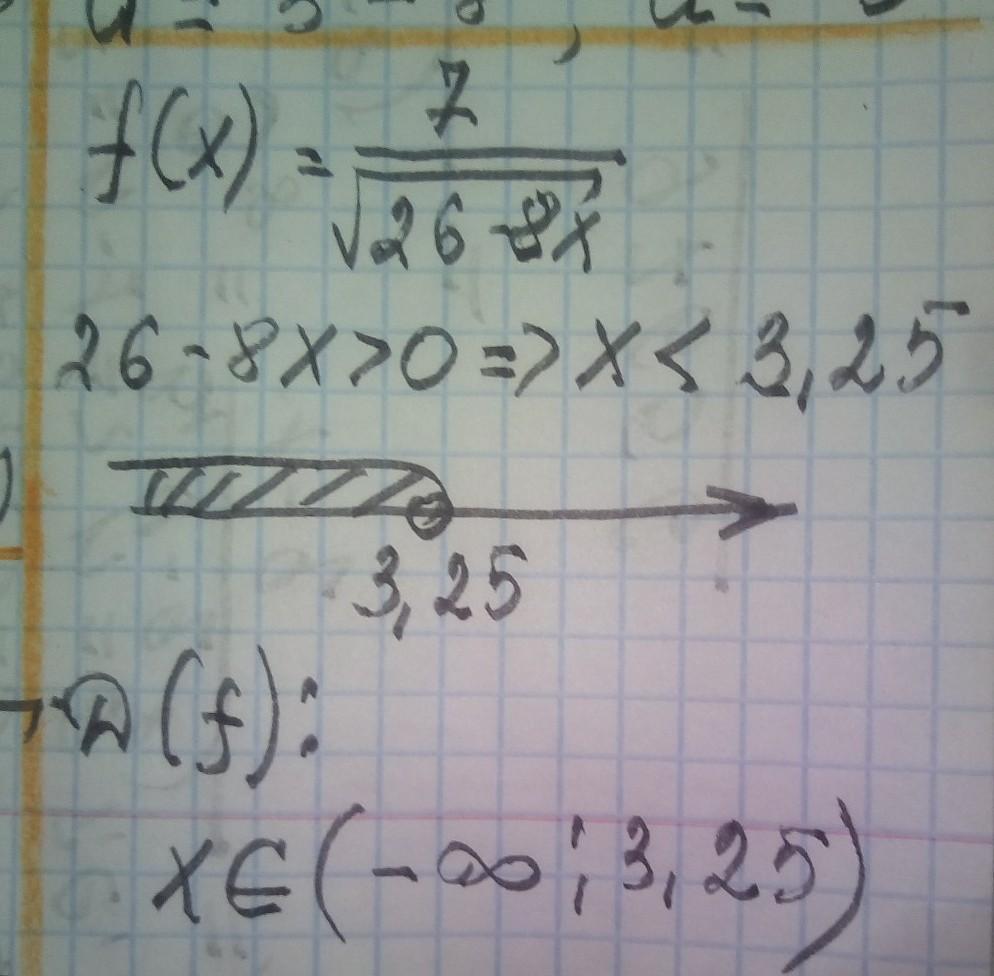 f(x) = 7/√(26-8x)
26-8x>0 => x < 3,25
3,25
D(f):
x∈(-∞; 3,25)